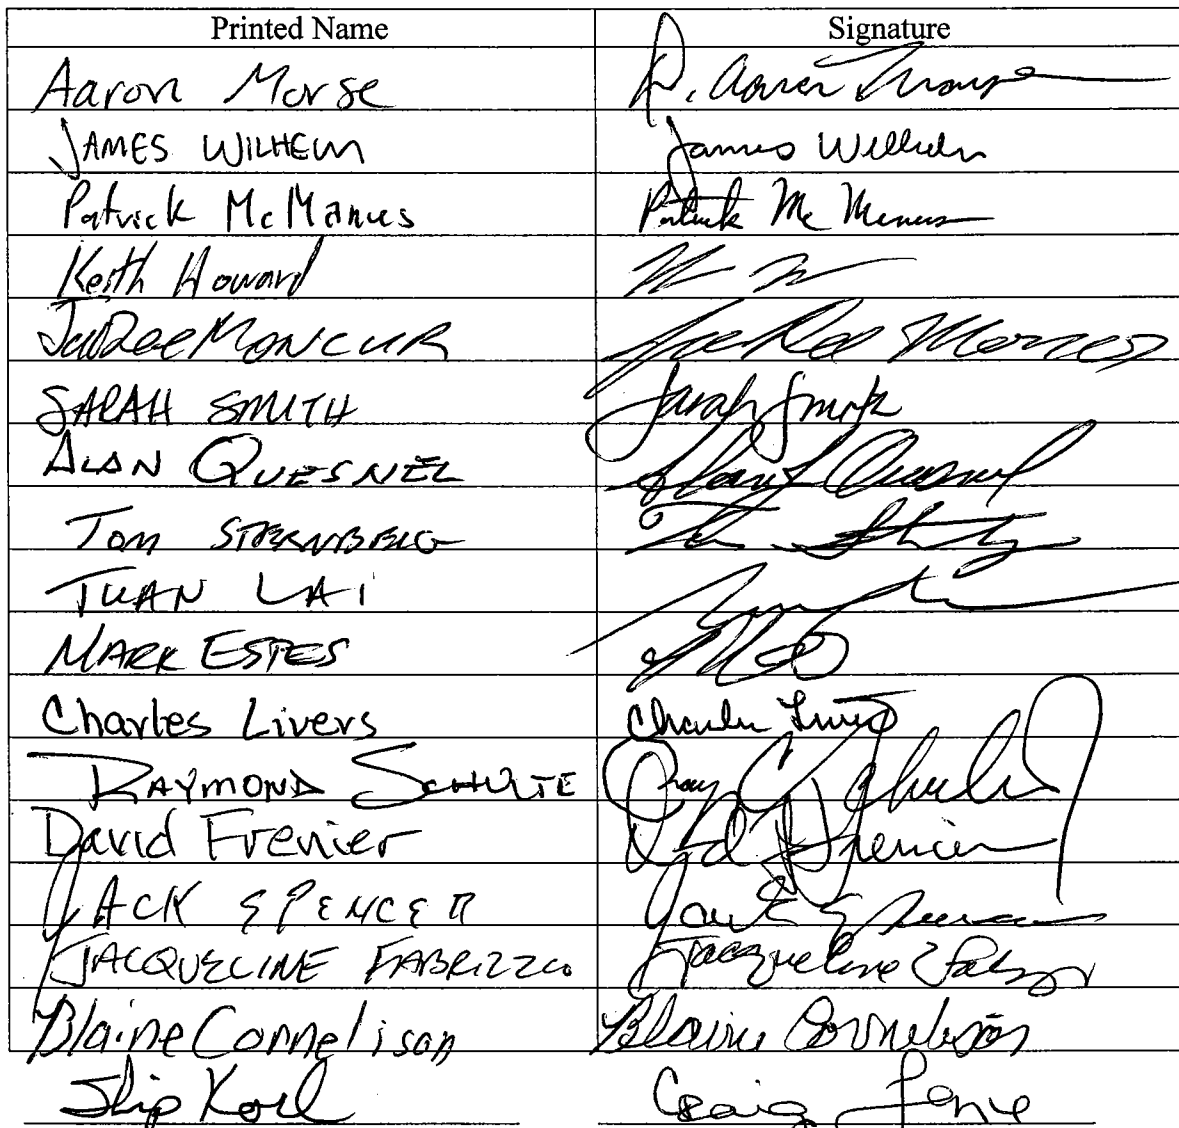 Printed Name Signature
Aaron Morse D. Aaron Morse
JAMES WILHELM James Wilhelm
Patrick McManus Patrick Mc Manus
Keith Howard
JaeRee MONCUR JaeRee Moncur
SARAH SMITH Sarah Smith
ALAN QUESNEL Quesnel
Tom STERNBERG
TUAN LAI
MARK ESTES
Charles Livers Charles Livers
RAYMOND SCHULTE Ray C Schulte
David Frenier Frenier
JACK SPENCER Jack Spencer
JACQUELINE FABRIZZIO Jacqueline
Blaine Cornelison Blaine Cornelison
Skip Craig